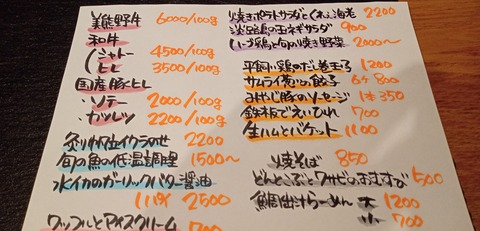 美熊野牛 6000/100g
和牛
シャトー 4500/100g
ヒレ 3500/100g
国産豚ヒレ
・ソテー 2000/100g
・カツレツ 2200/100g
炙り帆立イクラのせ 2200
旬の魚の低温調理 1500〜
水イカのガーリックバター醤油
1杯 2500
ワッフルとアイスクリーム 700
焼きポテトサラダとくるみ海老 2200
淡路島の玉ネギサラダ 900
2000〜
平飼い鶏のだし巻玉子 1200
サムライ葱の餃子 6ヶ 800
みやじ豚のソーセージ 1本 350
鉄板でえいひれ 700
生ハムとバケット 1100
焼そば 850
どんこぶとワサビのおむすび 500
鯛出汁らーめん 大 1200
小 700